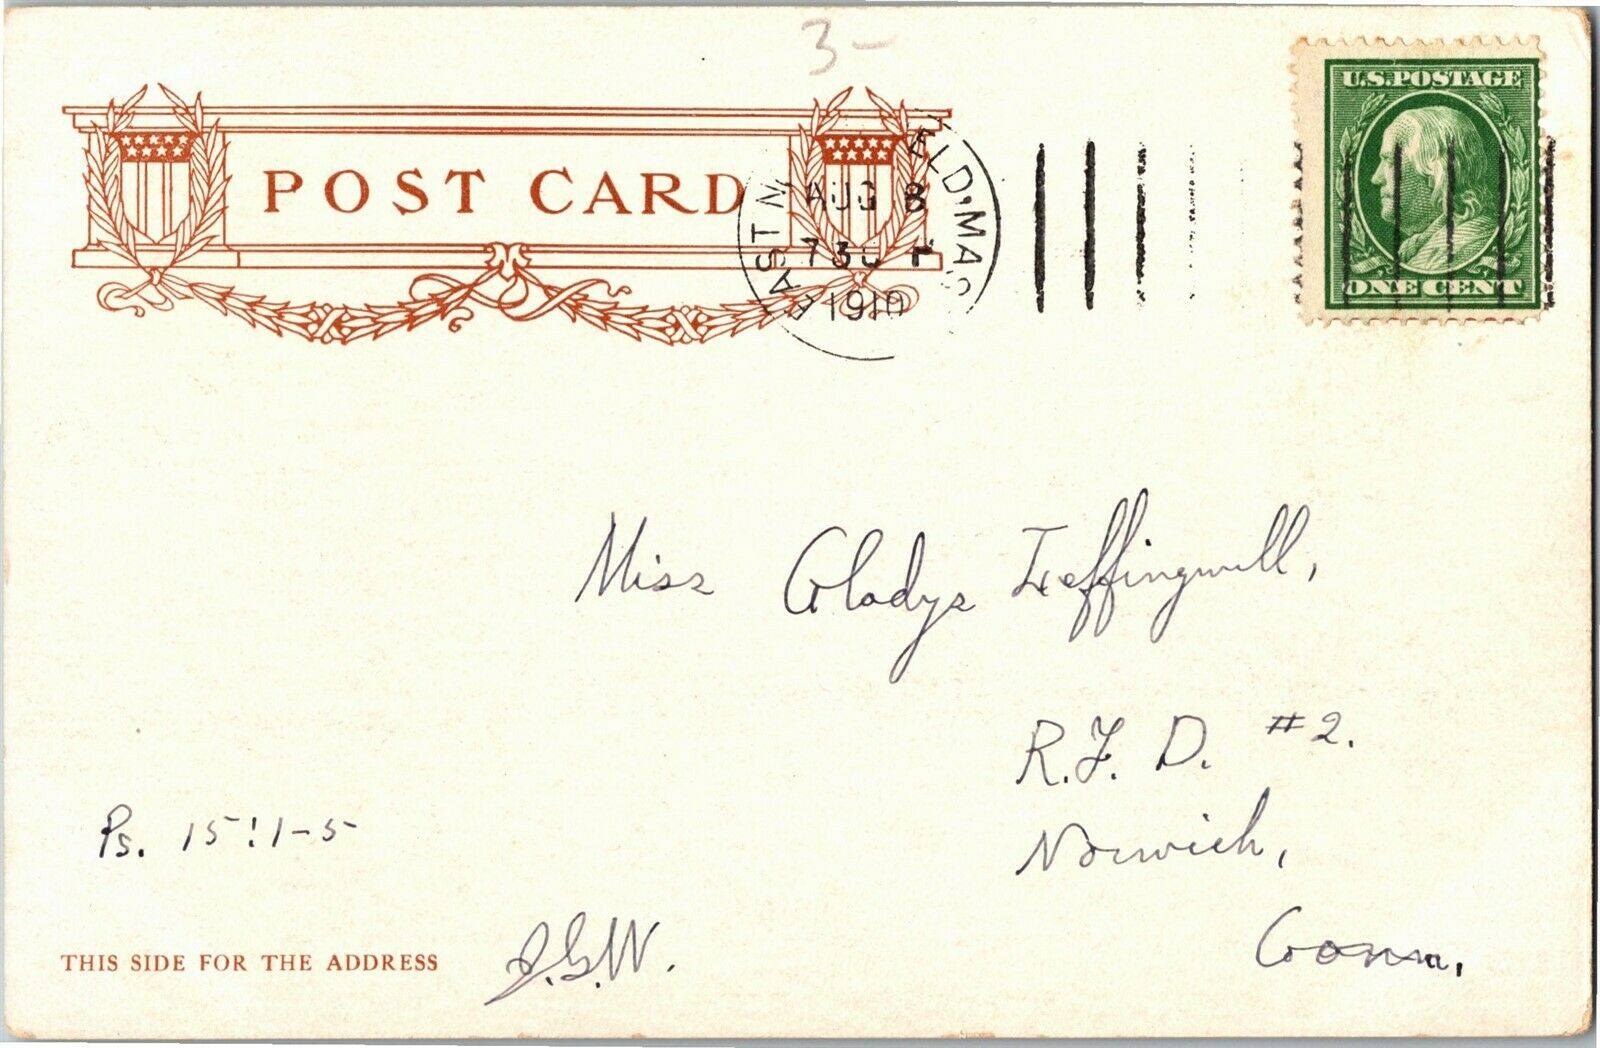 3-
U.S. POSTAGE
POST CARD
AUG 8
730 P
1910
ONE CENT
Miss Gladys Leffingwell,
R.F.D. #2.
Norwich,
Conn.
Ps. 15:1-5
J.G.W.
THIS SIDE FOR THE ADDRESS